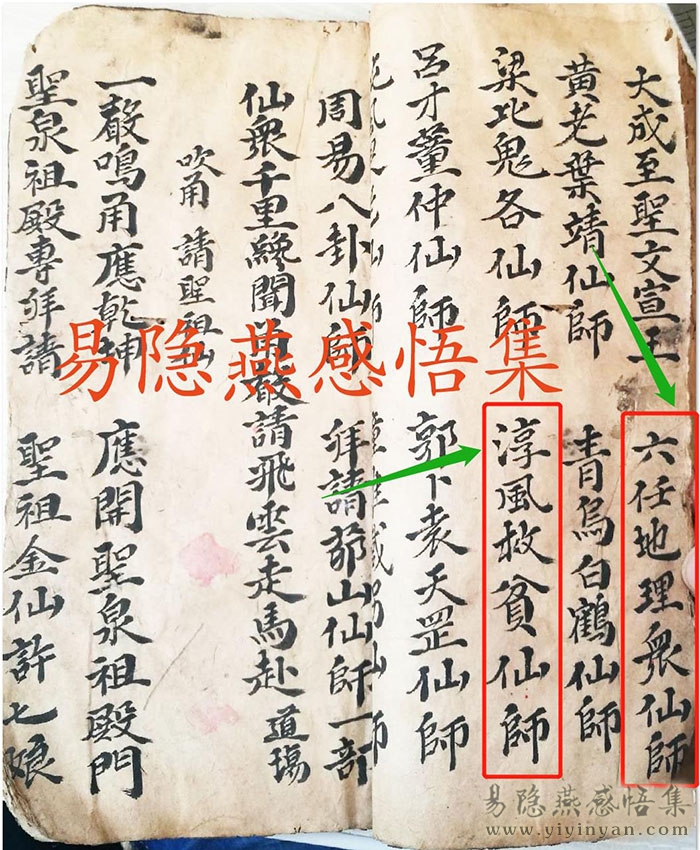 大成至聖文宣王 六任地理衆仙師
黃老葉靖仙師 青烏白鶴仙師
梁北鬼各仙師 淳風救貧仙師
呂才董仲仙師 郭卜袁天罡仙師
周易八卦仙師 拜請茆山仙師一部
仙衆千里纔聞 敬請飛雲走馬赴道場
吹角 請聖祖
一聲鳴角應乾坤 應開聖泉祖殿門
聖泉祖殿專拜請 聖祖金仙許七娘
易隐燕感悟集
易隐燕感悟集
www.yiyinyan.com